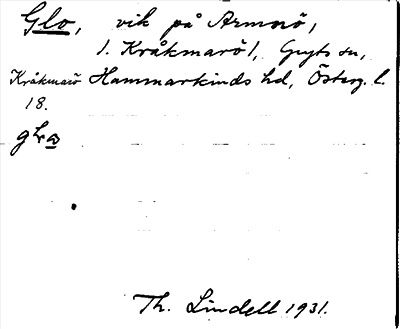 Glo, vik på Armorö,
1. Kråkmarö 1, Gryts sn,
Kråkmarö Hammarkinds hd, Österg. l.
18.
Th. Lindell 1931.